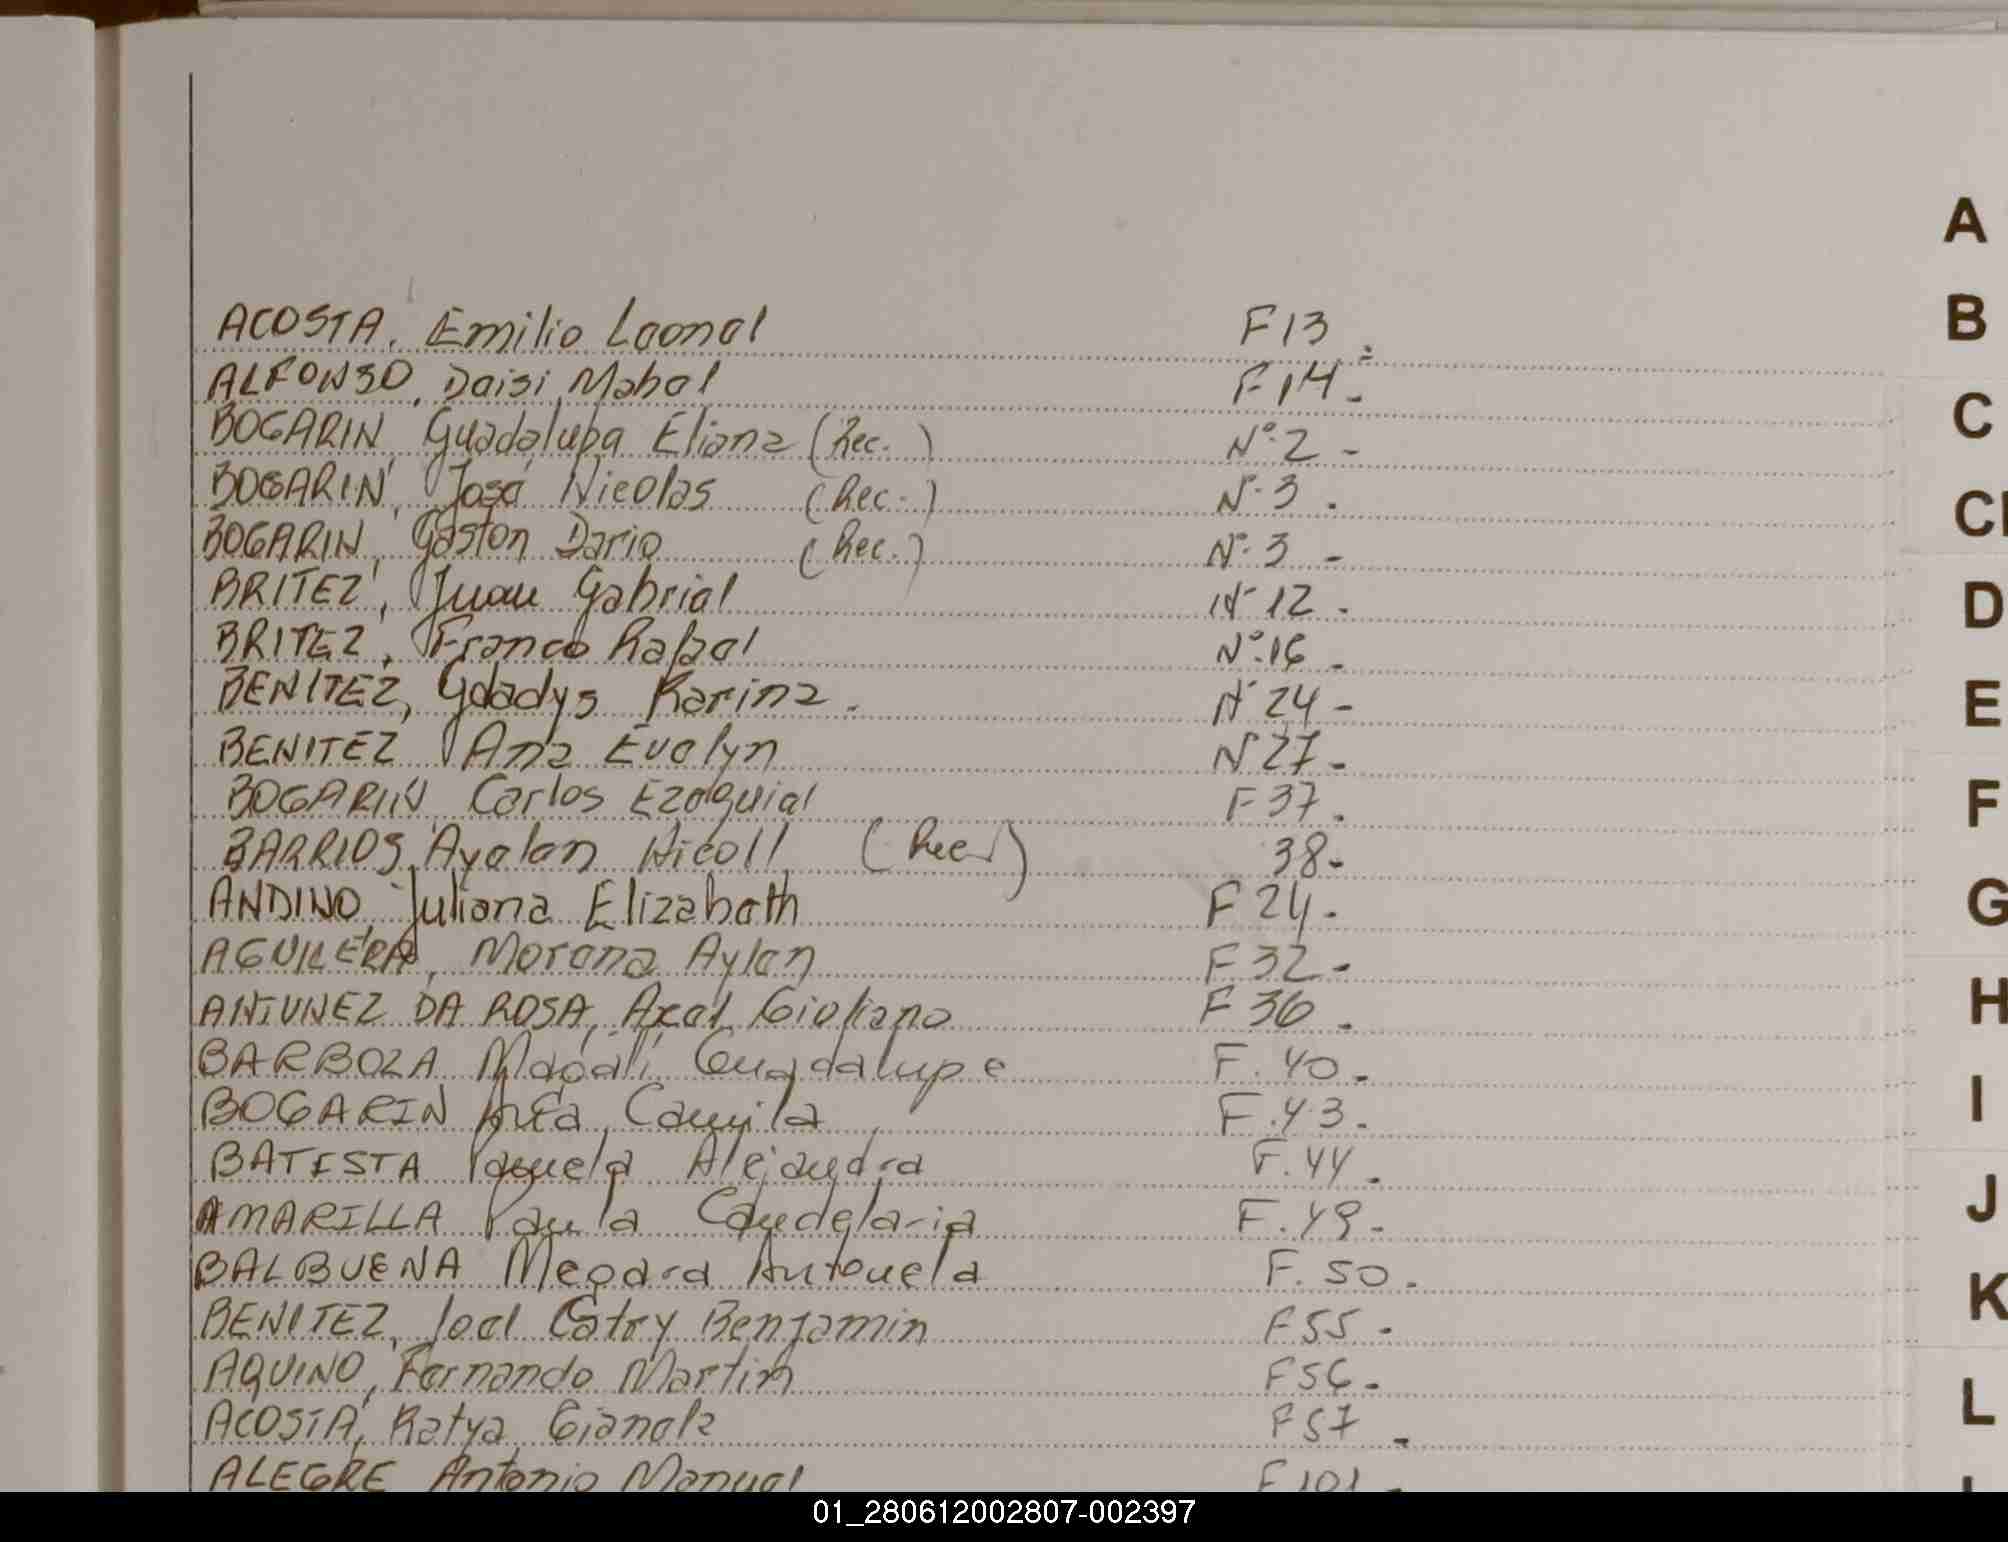 ACOSTA, Emilio Leonel F 13 -
ALFONSO, Daisi Mabel F 14 -
BOGARIN, Guadalupe Eliana (Rec.) Nº 2 -
BOGARIN, José Nicolas (Rec.) Nº 3 .
BOGARIN, Gaston Dario (Rec.) Nº 3 -
BRITEZ, Juan Gabriel Nº 12 -
BRITEZ, Franco Rafael Nº 16 -
BENITEZ, Gdadys Karina. Nº 24 -
BENITEZ Ana Evelyn N 27 -
BOGARIN Carlos Ezequiel F 37.
BARRIOS, Ayelen Nicoll (Rec.) 38 -
ANDINO Juliana Elizabeth F 24 -
AGUILERA, Morena Aylen F 32 -
ANTUNEZ DA ROSA, Axel Gioliano F 36 -
BARBOZA Magali Guadalupe F. 40 -
BOGARIN Camila F. 43 -
BATISTA Pamela Alejandra F. 44 -
AMARILLA Paula Candelaria F. 49 -
BALBUENA Megara Antonela F. 50 -
BENITEZ, Joel Benjamin F 55 -
AQUINO, Fernando Martin F 56 -
ACOSTA, Katya Gianela F 57 -
ALEGRE Antonio Manuel F 101 -
A
B
C
D
E
F
G
H
I
J
K
L
01_280612002807-002397